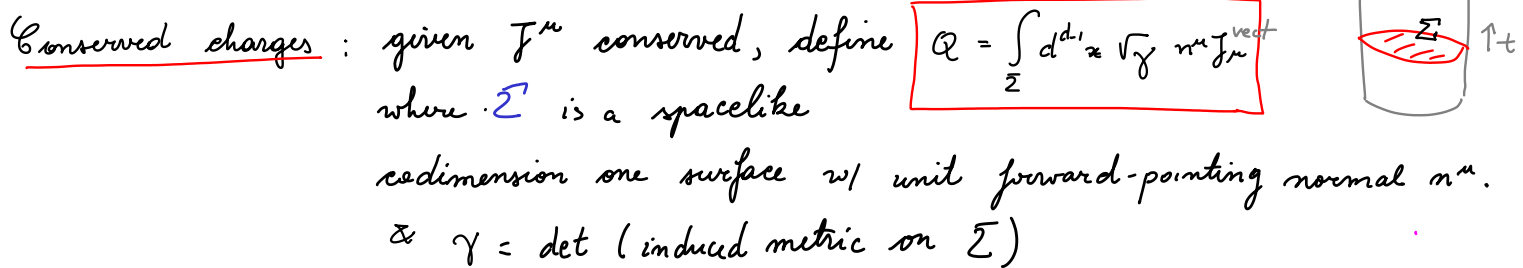 Conserved charges : given J^μ conserved, define Q = ∫_Σ d^{d-1}x √γ n^μ J_μ^{vect}
Σ ↑t
where Σ is a spacelike
codimension one surface w/ unit forward-pointing normal n^μ.
& γ = det (induced metric on Σ)